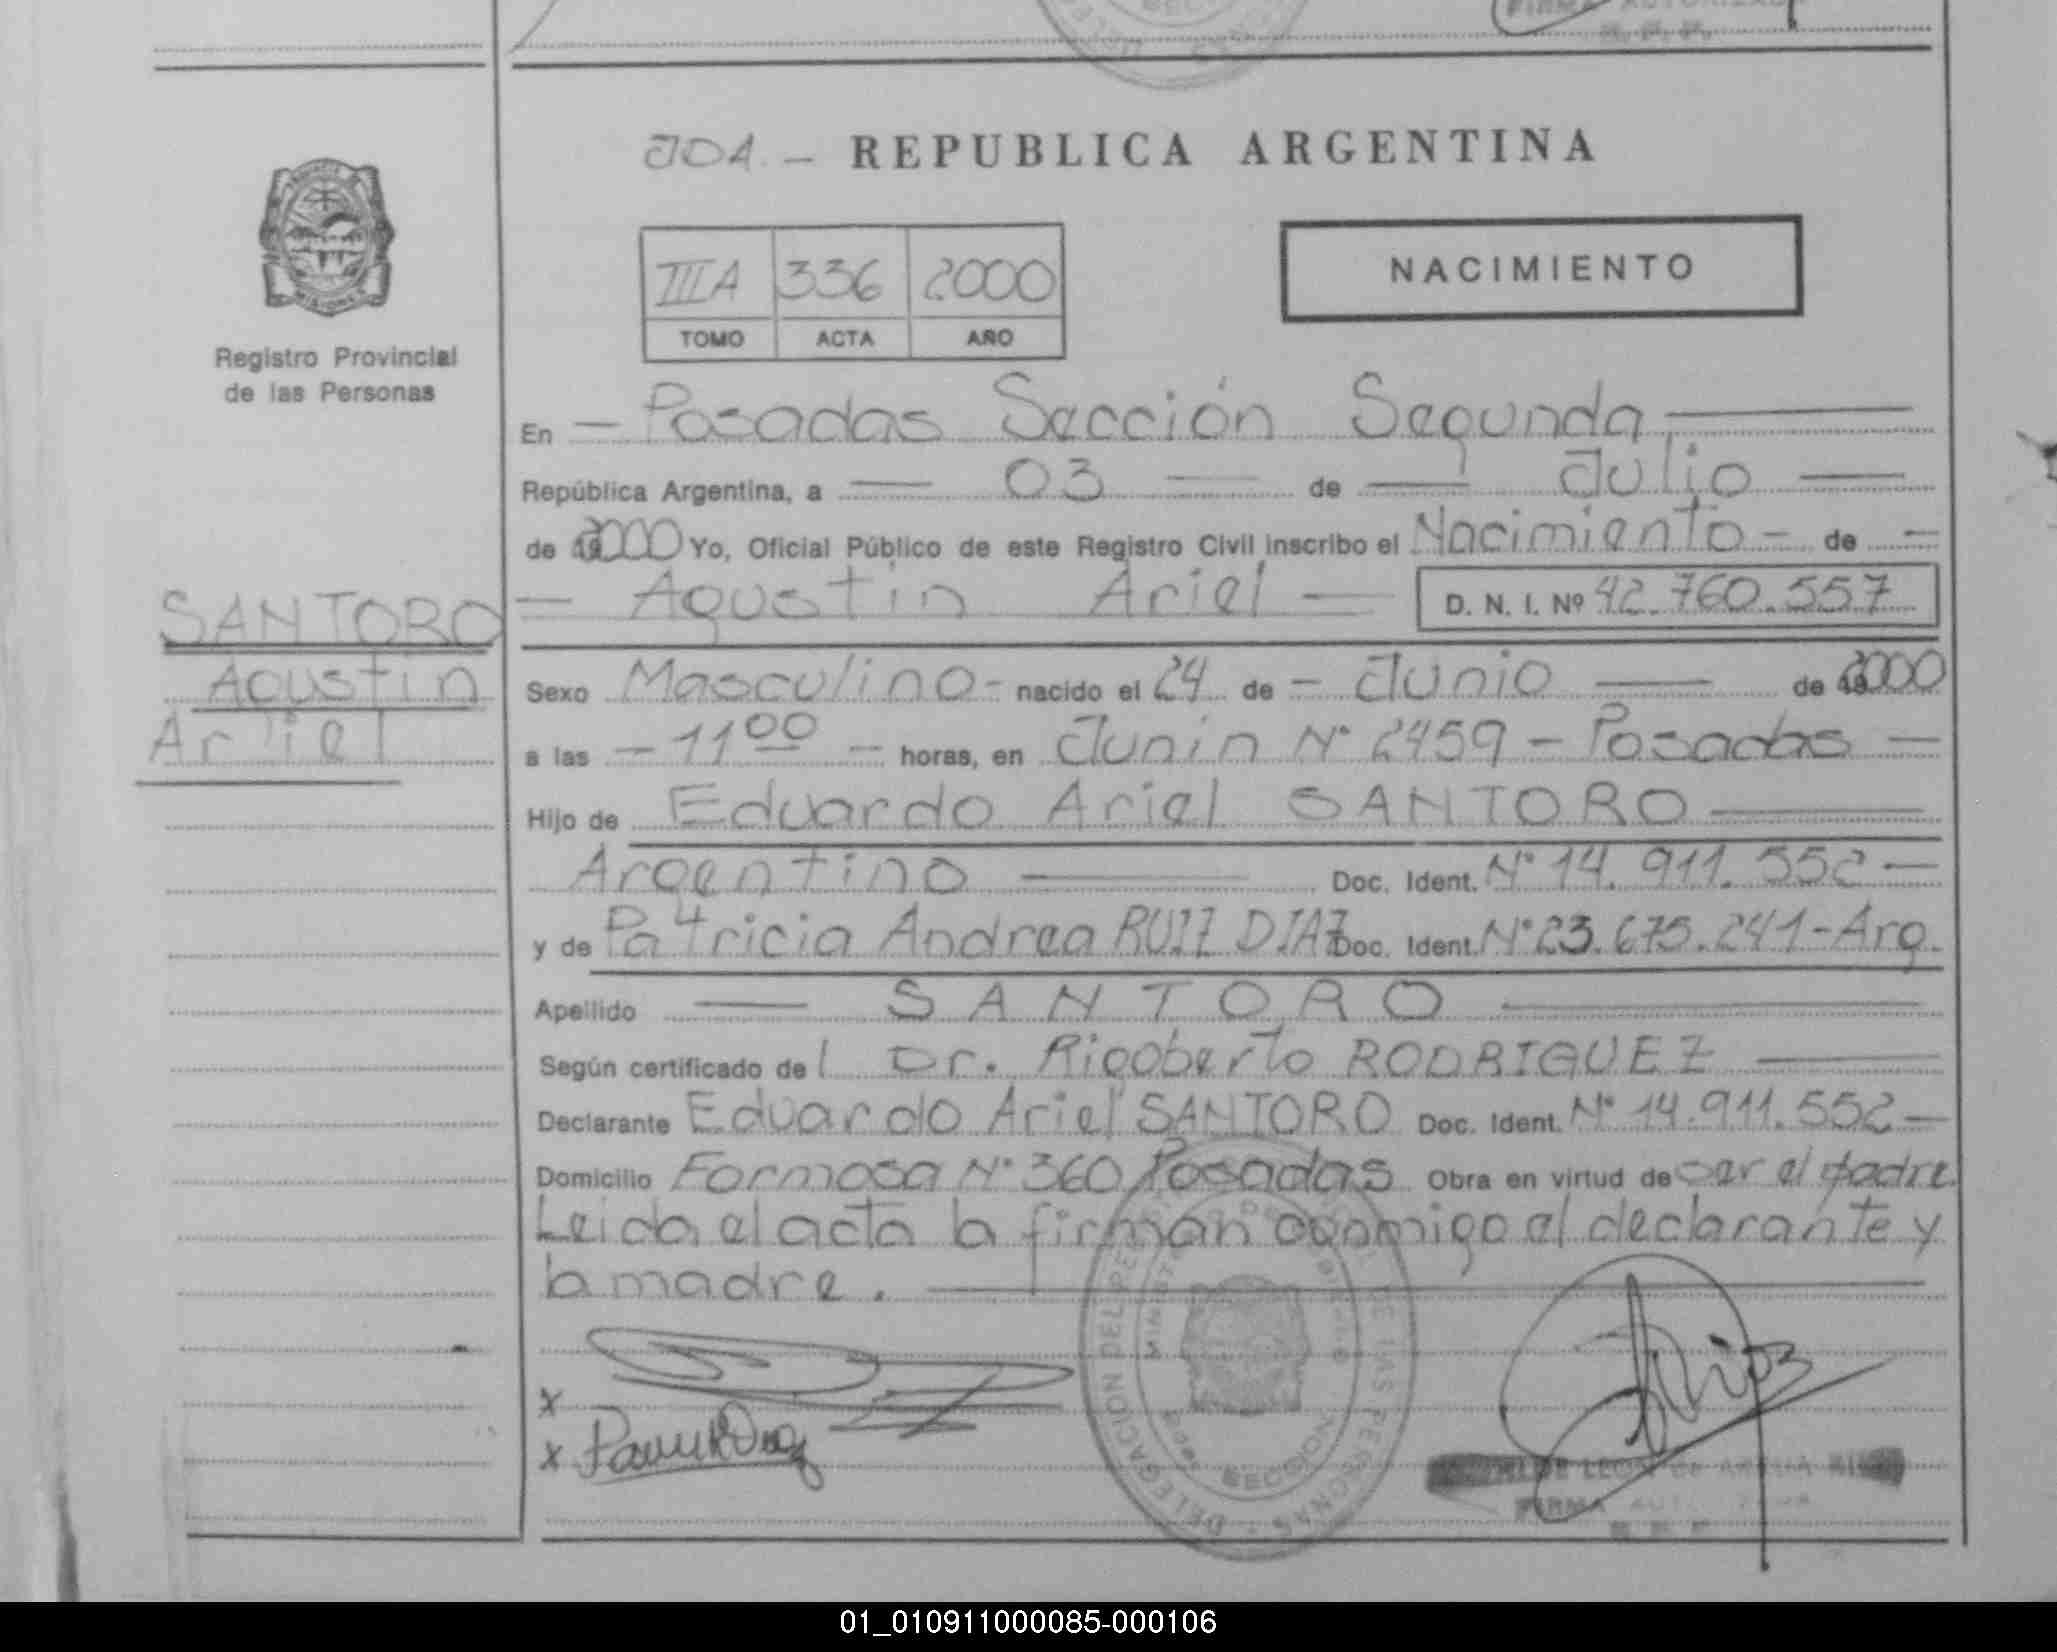 JOA. - REPUBLICA ARGENTINA
IIIA 336 2000
TOMO ACTA AÑO
NACIMIENTO
MISIONES
Registro Provincial
de las Personas
SANTORO
Agustin
Ariel
En — Posadas Sección Segunda —
República Argentina, a — 03 — de — Julio —
de 2000 Yo, Oficial Público de este Registro Civil inscribo el Nacimiento - de —
— Agustin Ariel — D. N. I. Nº 42.760.557
Sexo Masculino - nacido el 24 de - Junio — de 2000
a las — 11 00 — horas, en Junin Nº 2459 - Posadas —
Hijo de Eduardo Ariel SANTORO —
Argentino — Doc. Ident. Nº 14.911.552 —
y de Patricia Andrea RUIZ DIAZ Doc. Ident. Nº 23.675.241 - Arg.
Apellido — SANTORO —
Según certificado de l Dr. Rigoberto RODRIGUEZ —
Declarante Eduardo Ariel SANTORO Doc. Ident. Nº 14.911.552 —
Domicilio Formosa Nº 360 Posadas Obra en virtud de ser el padre.
Leida el acta la firman conmigo el declarante y
la madre. —
x
x
DELEGACION DEL DE LAS PERSONAS
SECCION
FIRMA
01_010911000085-000106